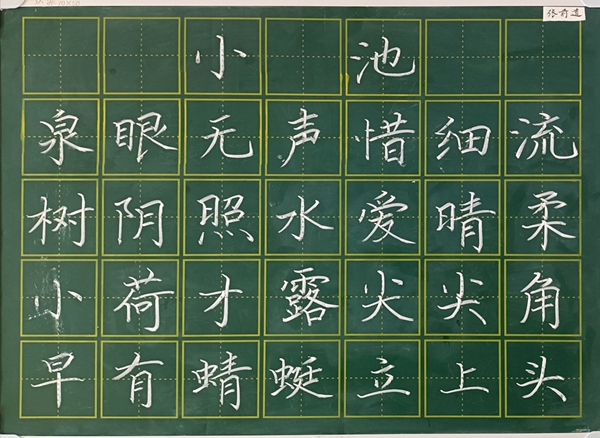 张前进
小池
泉眼无声惜细流
树阴照水爱晴柔
小荷才露尖尖角
早有蜻蜓立上头